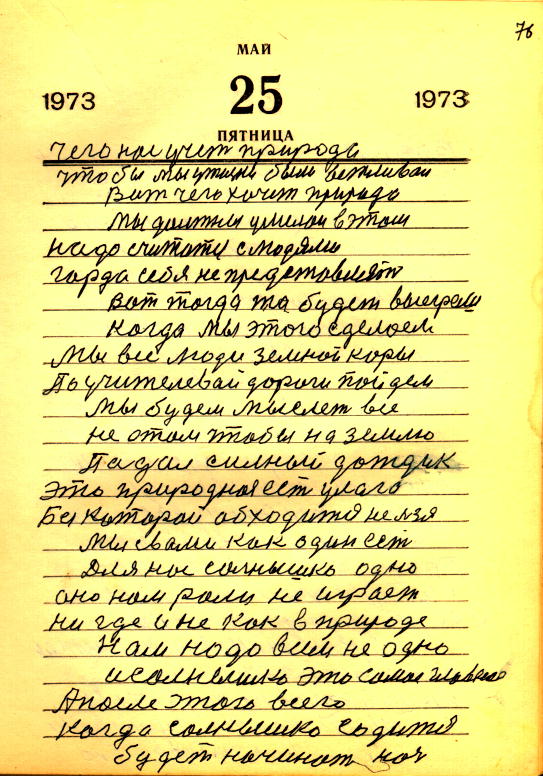 76
МАЙ
1973 25 1973
ПЯТНИЦА
Чего нас учет природа
чтобы мы были вежливаи
Вот чего хочет природа
Мы должны в этом
Надо считаты с людями
горда себя не предстовлят
Вот тогда та будет выеграш
Когда мы этого сделоем
Мы все люди земной коры
По учителевай дороги пойдем
Мы будем мыслет все
не отом чтобы на землю
Падал силный дождик
Это природная ест улаго
Без которой обходится нелзя
Мы свами как один ест
Для нас солнышко одно
оно ном роли не играет
ни где и не как в природе
Нам надо всим не одно
и солнышко это самое главное
А после этого всего
Когда солнышко садится
будет начинат ноч